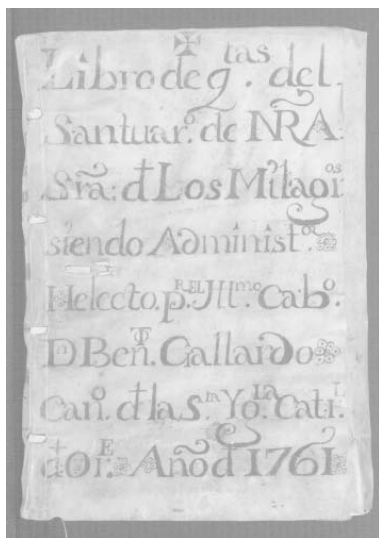 Libro de q.tas del.
Santuar.o de NRA.
Sra: d Los Milagr.os
siendo Administ.or
Helecto. p.R EL Ill.mo Cab.o
D.n Ben.T Gallardo
Can.o d la S.m Yg.LA Cat.L
d Or.E Año d 1761